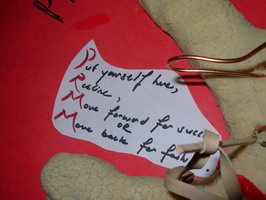 Put yourself here,
Recline,
Move forward for sweet
OR
Move back for